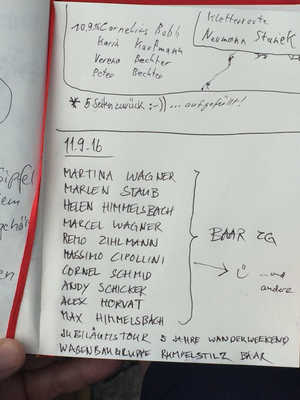 10.9.16 Cornelius Bobli
Karin Kaufmann
Verena Bechter
Peter Bechter
Kletterroute
Neumann Stanek
* 5 Seiten zurück :-)) ... aufgefüllt!
11.9.16
MARTINA WAGNER
MARLEN STAUB
HELEN HIMMELSBACH
MARCEL WAGNER
REMO ZIHLMANN
MASSIMO CIPOLLINI
CORNEL SCHMID
ANDY SCHICKER
ALEX HORVAT
MAX HIMMELSBACH
BAAR ZG
...und
andere
JUBILÄUMSTOUR 5 JAHRE WANDERWEEKEND
WAGENBAUGRUPPE RUMPELSTILZ BAAR